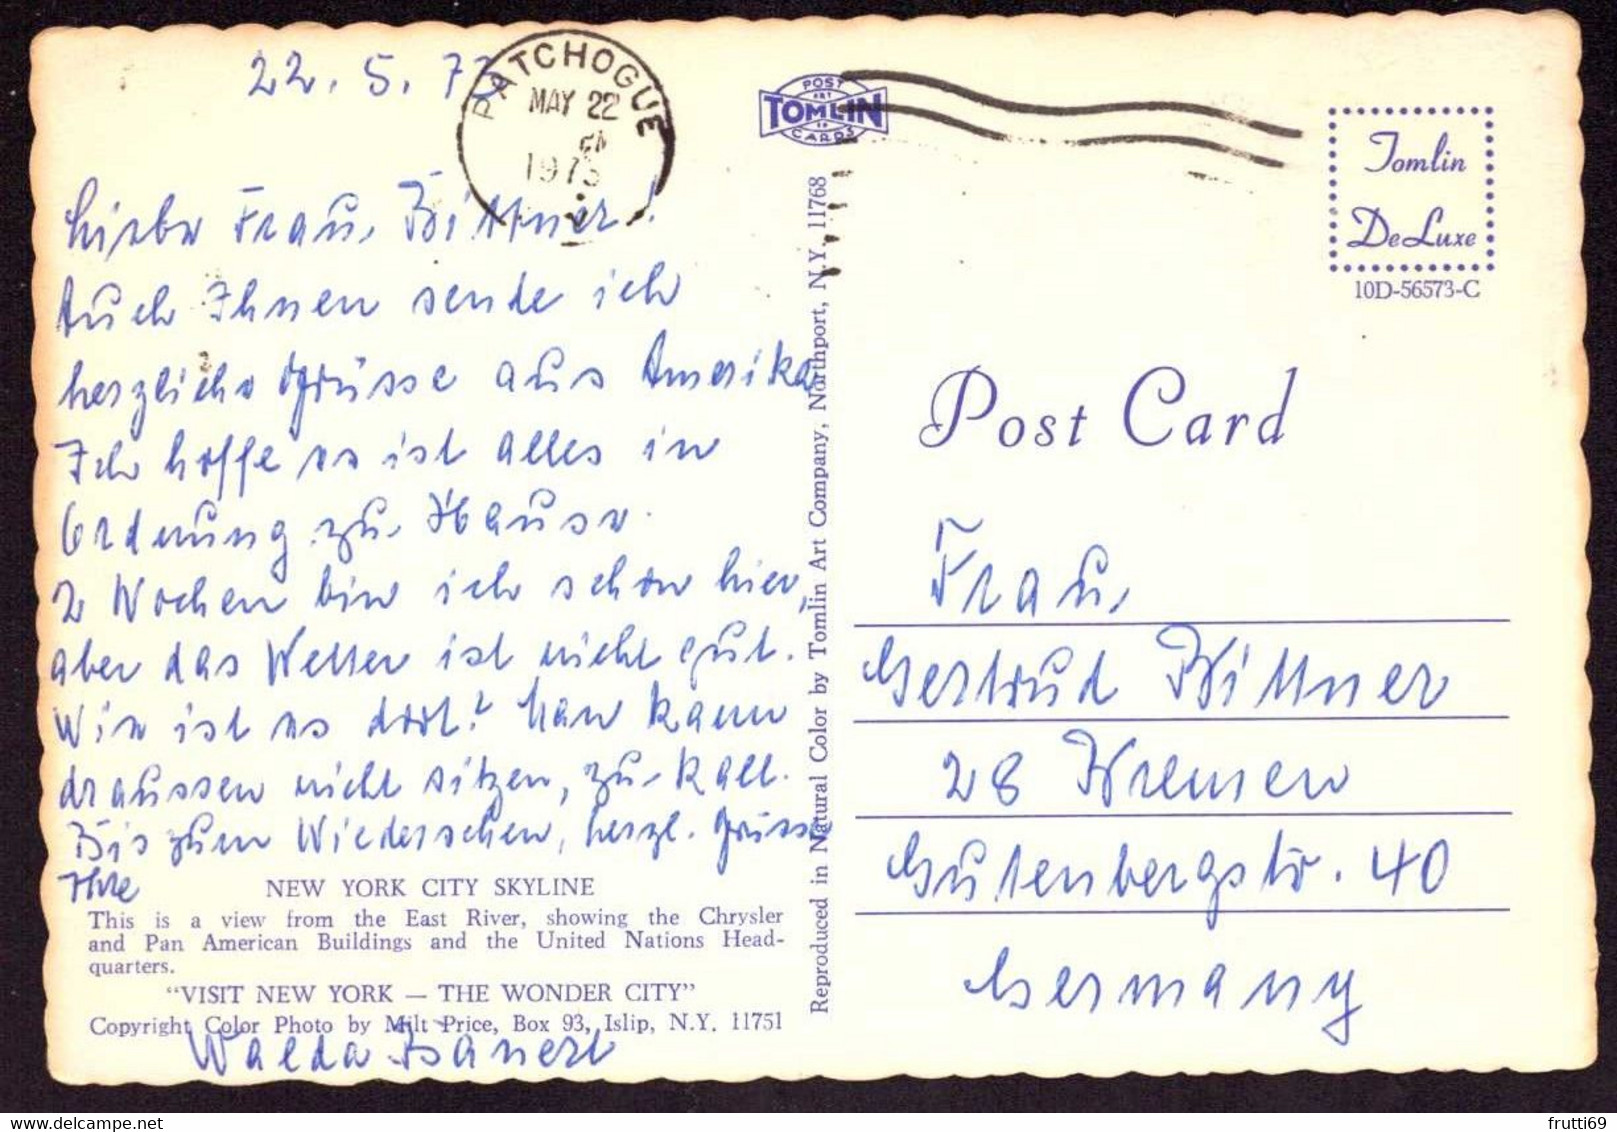 22. 5. 73
PATCHOGUE
MAY 22
PM
1973
POST
ART
TOMLIN
CO
CARDS
Tomlin
DeLuxe
10D-56573-C
Liebe Frau Bittner!
Auch Ihnen sende ich
herzliche Grüsse aus Amerika
Ich hoffe es ist alles in
Ordnung zu Hause.
2 Wochen bin ich schon hier,
aber das Wetter ist nicht gut.
Wie ist es dort? Man kann
draussen nicht sitzen, zu kalt.
Bis zum Wiedersehen, herzl. Grüsse
Ihre
Walda
NEW YORK CITY SKYLINE
This is a view from the East River, showing the Chrysler
and Pan American Buildings and the United Nations Head-
quarters.
"VISIT NEW YORK — THE WONDER CITY"
Copyright Color Photo by Milt Price, Box 93, Islip, N.Y. 11751
Reproduced in Natural Color by Tomlin Art Company, Northport, N.Y. 11768
Post Card
Frau
Gertrud Bittner
28 Bremen
Gutenbergstr. 40
Germany
frutti69